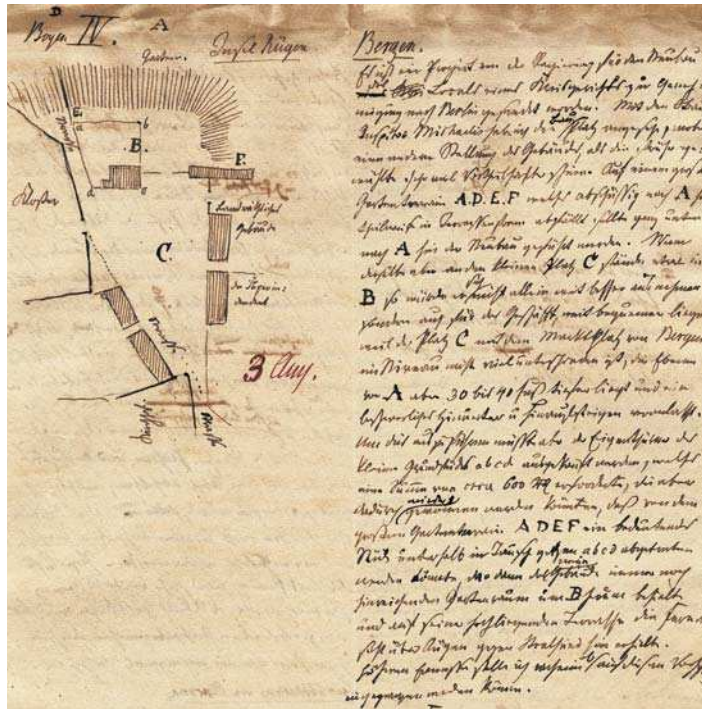 D
Bogen IV.
A
Garten.
Insel Rügen
E
b
B.
F.
a
c
Kloster
Landräthliches
Gebäude
C.
des Superin-
dendent
3 Aug.
Kirchhof.
Bergen.
Es ist ein Project von der Regierung für den Neubau
des Locals eines Kreisgerichts zur Geneh-
migung nach Berlin gesendet worden. Mit dem Bau
Inspector Michaelis habe ich den Platz angesehen, wobei
eine andere Stellung des Gebäudes, als die früher ge-
wählte sehr viel Vortheilhafter schiene. Auf einem großen
Gartenterrain A.D.E.F welches abschüssig nach A hin
theilweis in Terrassenform abfällt sollte ganz unten
nach A hin der Neubau geführt werden. Wenn
derselbe aber an dem kleinen Platz C stände etwa in
B so würde er sich nicht allein weit besser ausnehmen
sondern auch für die Geschäfte weit bequemer liegen
weil der Platz C mit dem Marktplatz von Bergen
im Niveau nicht viel unterschieden ist, die Ebene
von A aber 30 bis 40 Fuß tiefer liegt und ein
beschwerliches Hinunter u Hinaufsteigen veranlaßt.
Um dies auszuführen müßte aber der Eigenthümer des
kleinen Grundstücks abcd ausgekauft werden, welches
eine Summe von circa 600 erforderte, die aber
dadurch wieder gewonnen werden könnten, daß von dem
großen Gartenterrain A D E F ein bedeutendes
Stück unterhalb im Tausch gegen abcd abgetreten
werden könnte, wo dann das neue Gebäude immer noch
hinreichenden Gartenraum um B herum behielt
und auf seiner hochliegenden Terrasse die Fern-
sicht über Rügen gegen Stralsund hin erhielte.
Höherem Ermessen stelle ich anheim ob auf diesen Vorschlag
eingegangen werden könne.